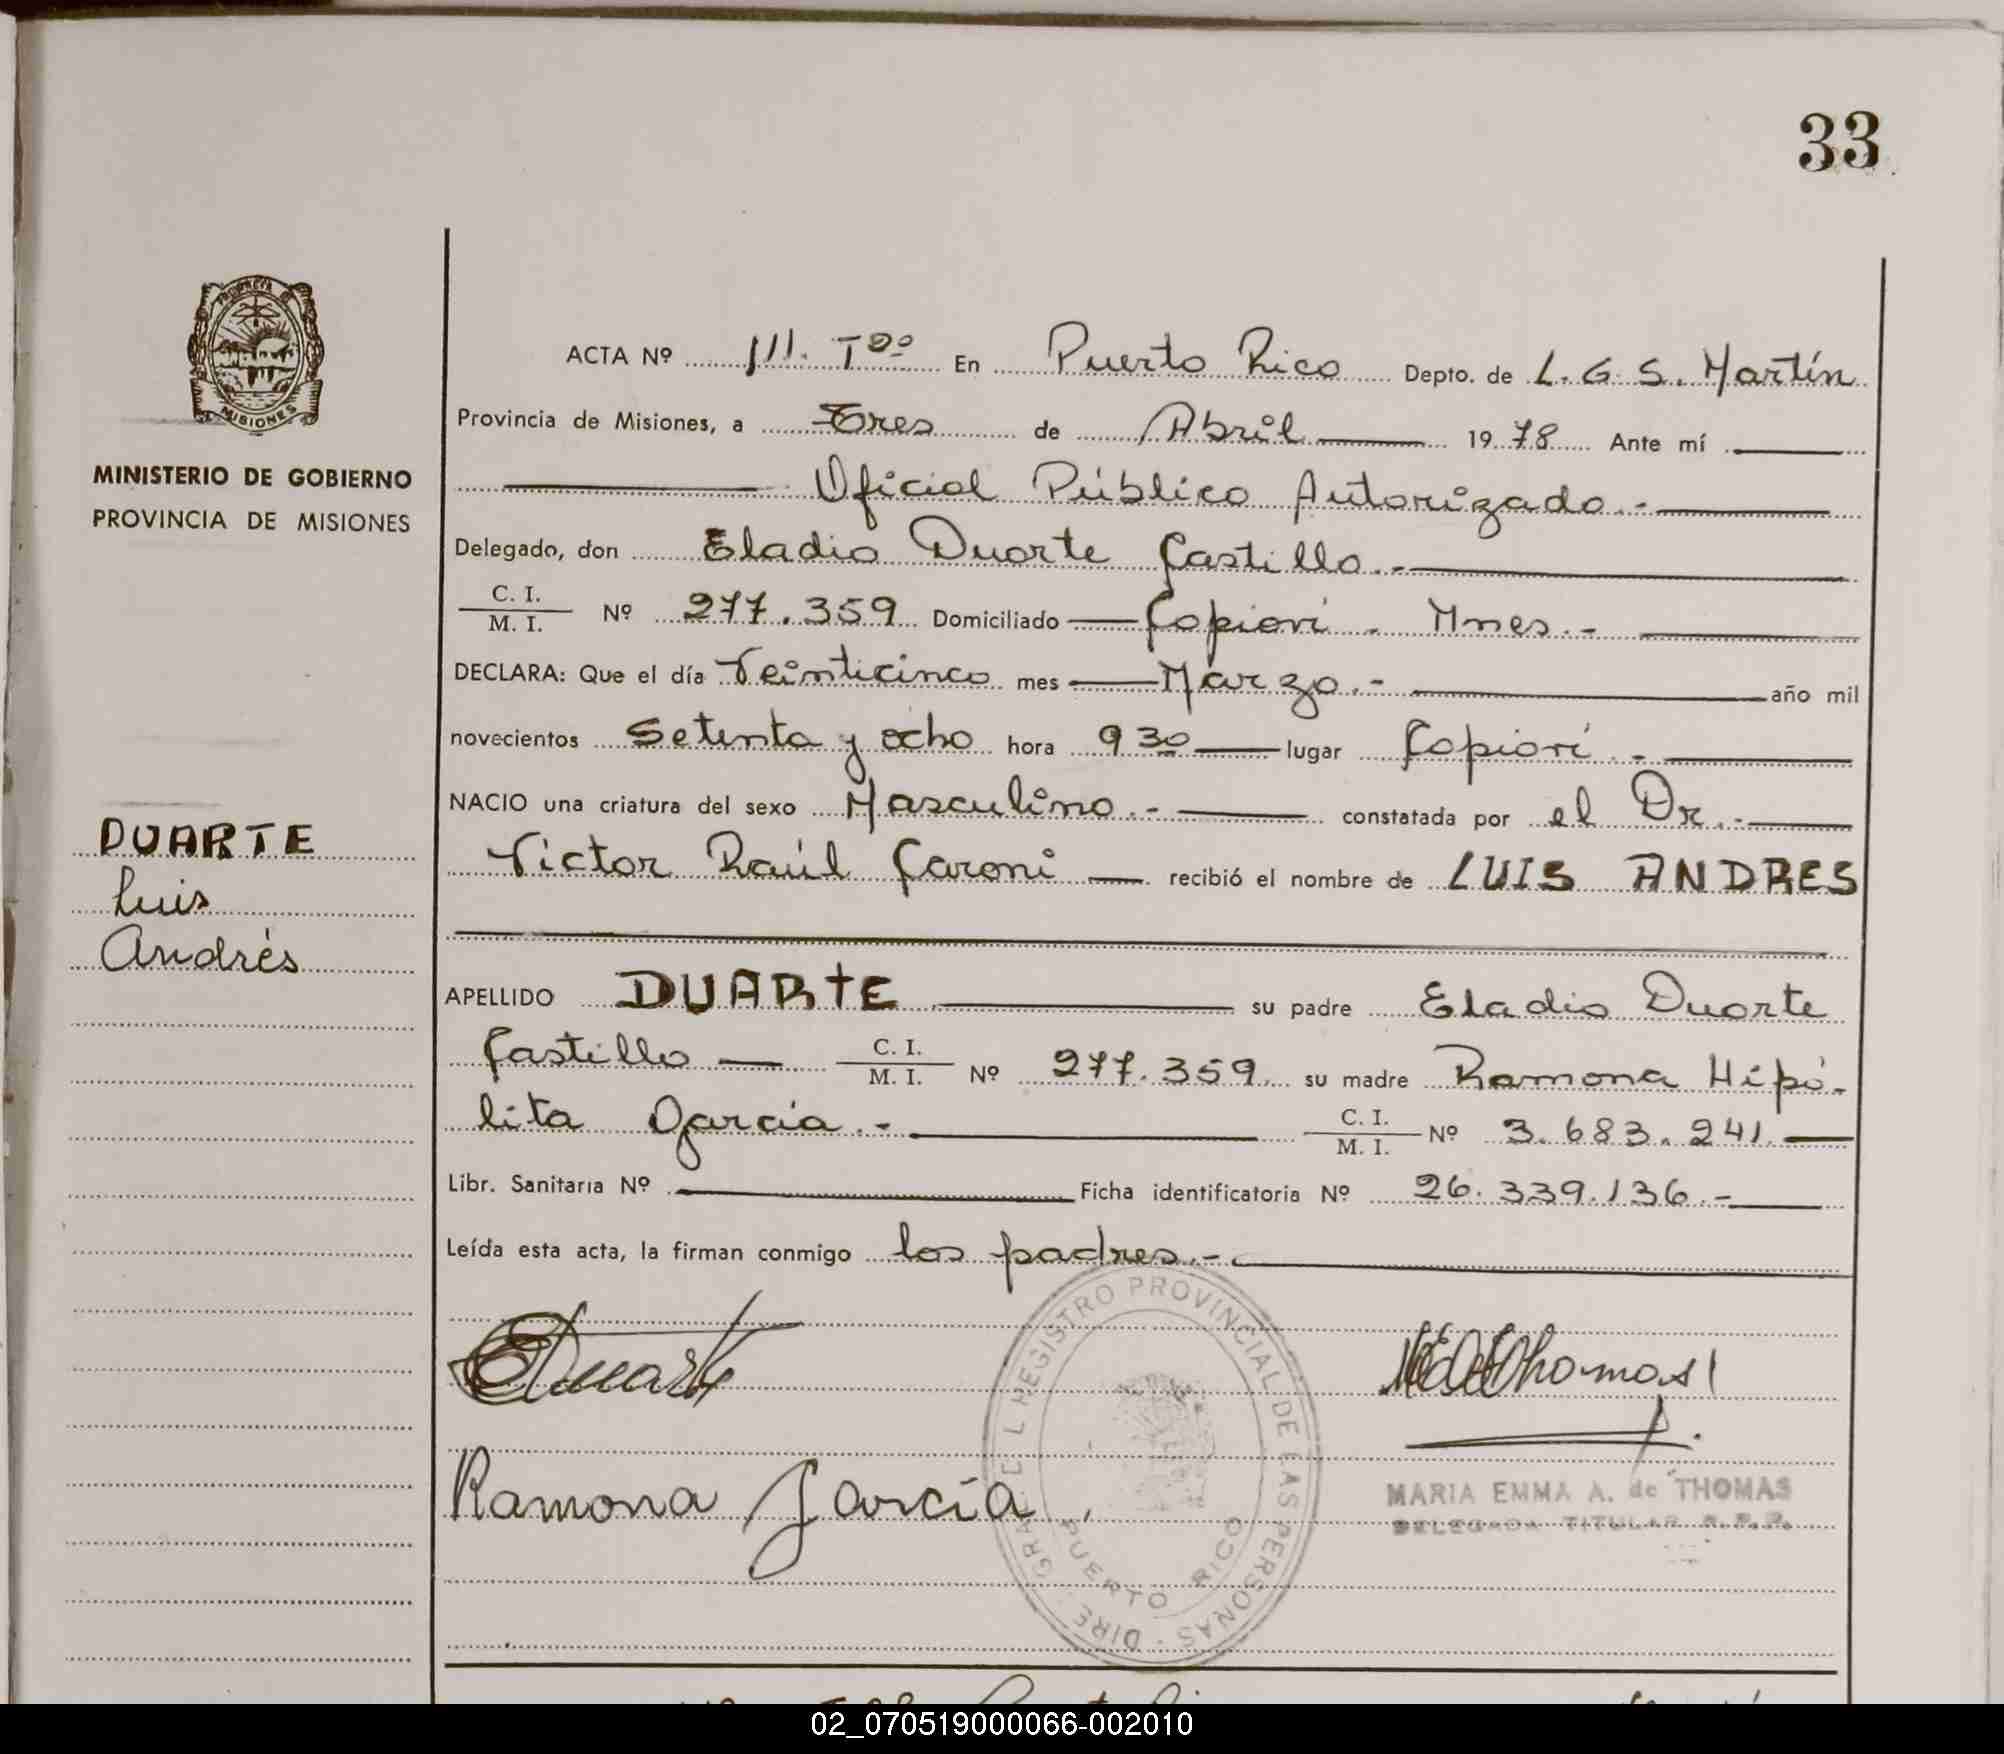 33
PROVINCIA DE
MISIONES
MINISTERIO DE GOBIERNO
PROVINCIA DE MISIONES
DUARTE
Luis
Andrés
ACTA Nº 111. Tºº En Puerto Rico Depto. de L. G. S. Martín
Provincia de Misiones, a Tres de Abril 1978 Ante mí
Oficial Público Autorizado.-
Delegado, don Eladio Duarte Castillo.-
C. I.
M. I. Nº 277.359 Domiciliado Capioví - Mnes.-
DECLARA: Que el día Veinticinco mes Marzo.- año mil
novecientos Setenta y ocho hora 9 30 lugar Capioví.-
NACIO una criatura del sexo Masculino.- constatada por el Dr.-
Victor Raúl Caroni recibió el nombre de LUIS ANDRES
APELLIDO DUARTE su padre Eladio Duarte
Castillo C. I.
M. I. Nº 277.359 su madre Ramona Hipó-
lita García.- C. I.
M. I. Nº 3.683.241
Libr. Sanitaria Nº Ficha identificatoria Nº 26.339.136.-
Leída esta acta, la firman conmigo los padres.-
EDuarte
Ramona García
DIRE. GRAL. DEL REGISTRO PROVINCIAL DE LAS PERSONAS
PUERTO RICO
MARIA EMMA A. de THOMAS
DELEGADA TITULAR R.P.P.
02_070519000066-002010